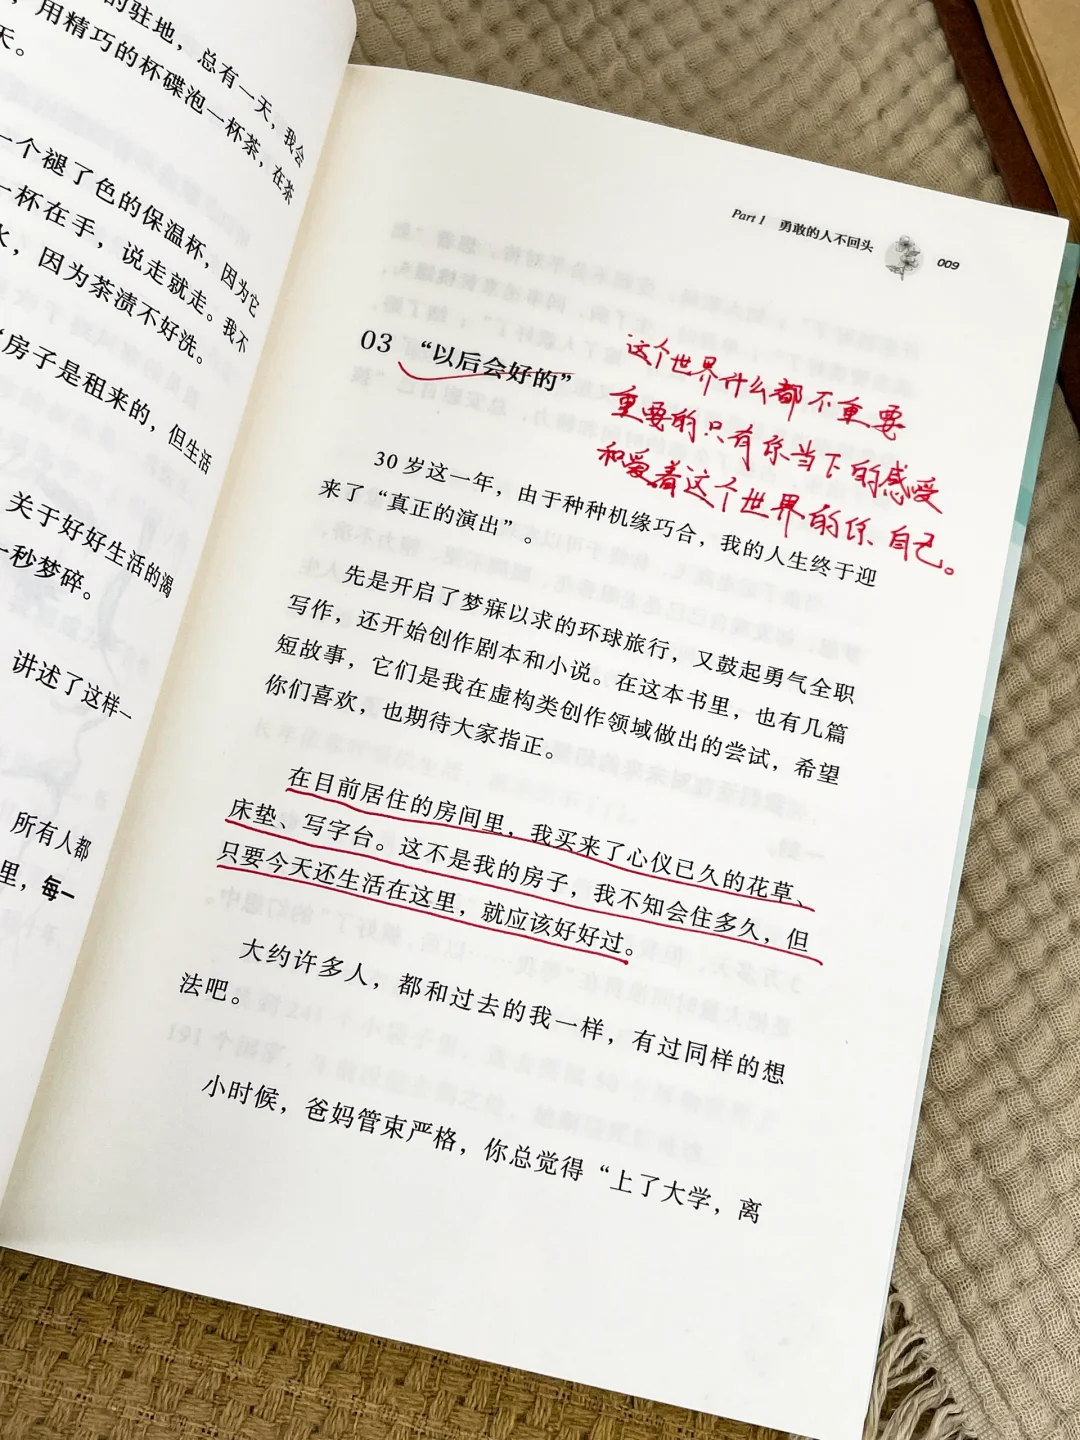 的驻地，总有一天，我会
，用精巧的杯碟泡一杯茶，在茶
天。
一个褪了色的保温杯，因为它
一杯在手，说走就走。我不
水，因为茶渍不好洗。
“房子是租来的，但生活
关于好好生活的渴
一秒梦碎。
讲述了这样一
所有人都
里，每一
Part 1 勇敢的人不回头 009
03 “以后会好的”
这个世界什么都不重要
重要的只有你当下的感受
和爱着这个世界的你自己。
30 岁这一年，由于种种机缘巧合，我的人生终于迎
来了“真正的演出”。
先是开启了梦寐以求的环球旅行，又鼓起勇气全职
写作，还开始创作剧本和小说。在这本书里，也有几篇
短故事，它们是我在虚构类创作领域做出的尝试，希望
你们喜欢，也期待大家指正。
在目前居住的房间里，我买来了心仪已久的花草、
床垫、写字台。这不是我的房子，我不知会住多久，但
只要今天还生活在这里，就应该好好过。
大约许多人，都和过去的我一样，有过同样的想
法吧。
小时候，爸妈管束严格，你总觉得“上了大学，离